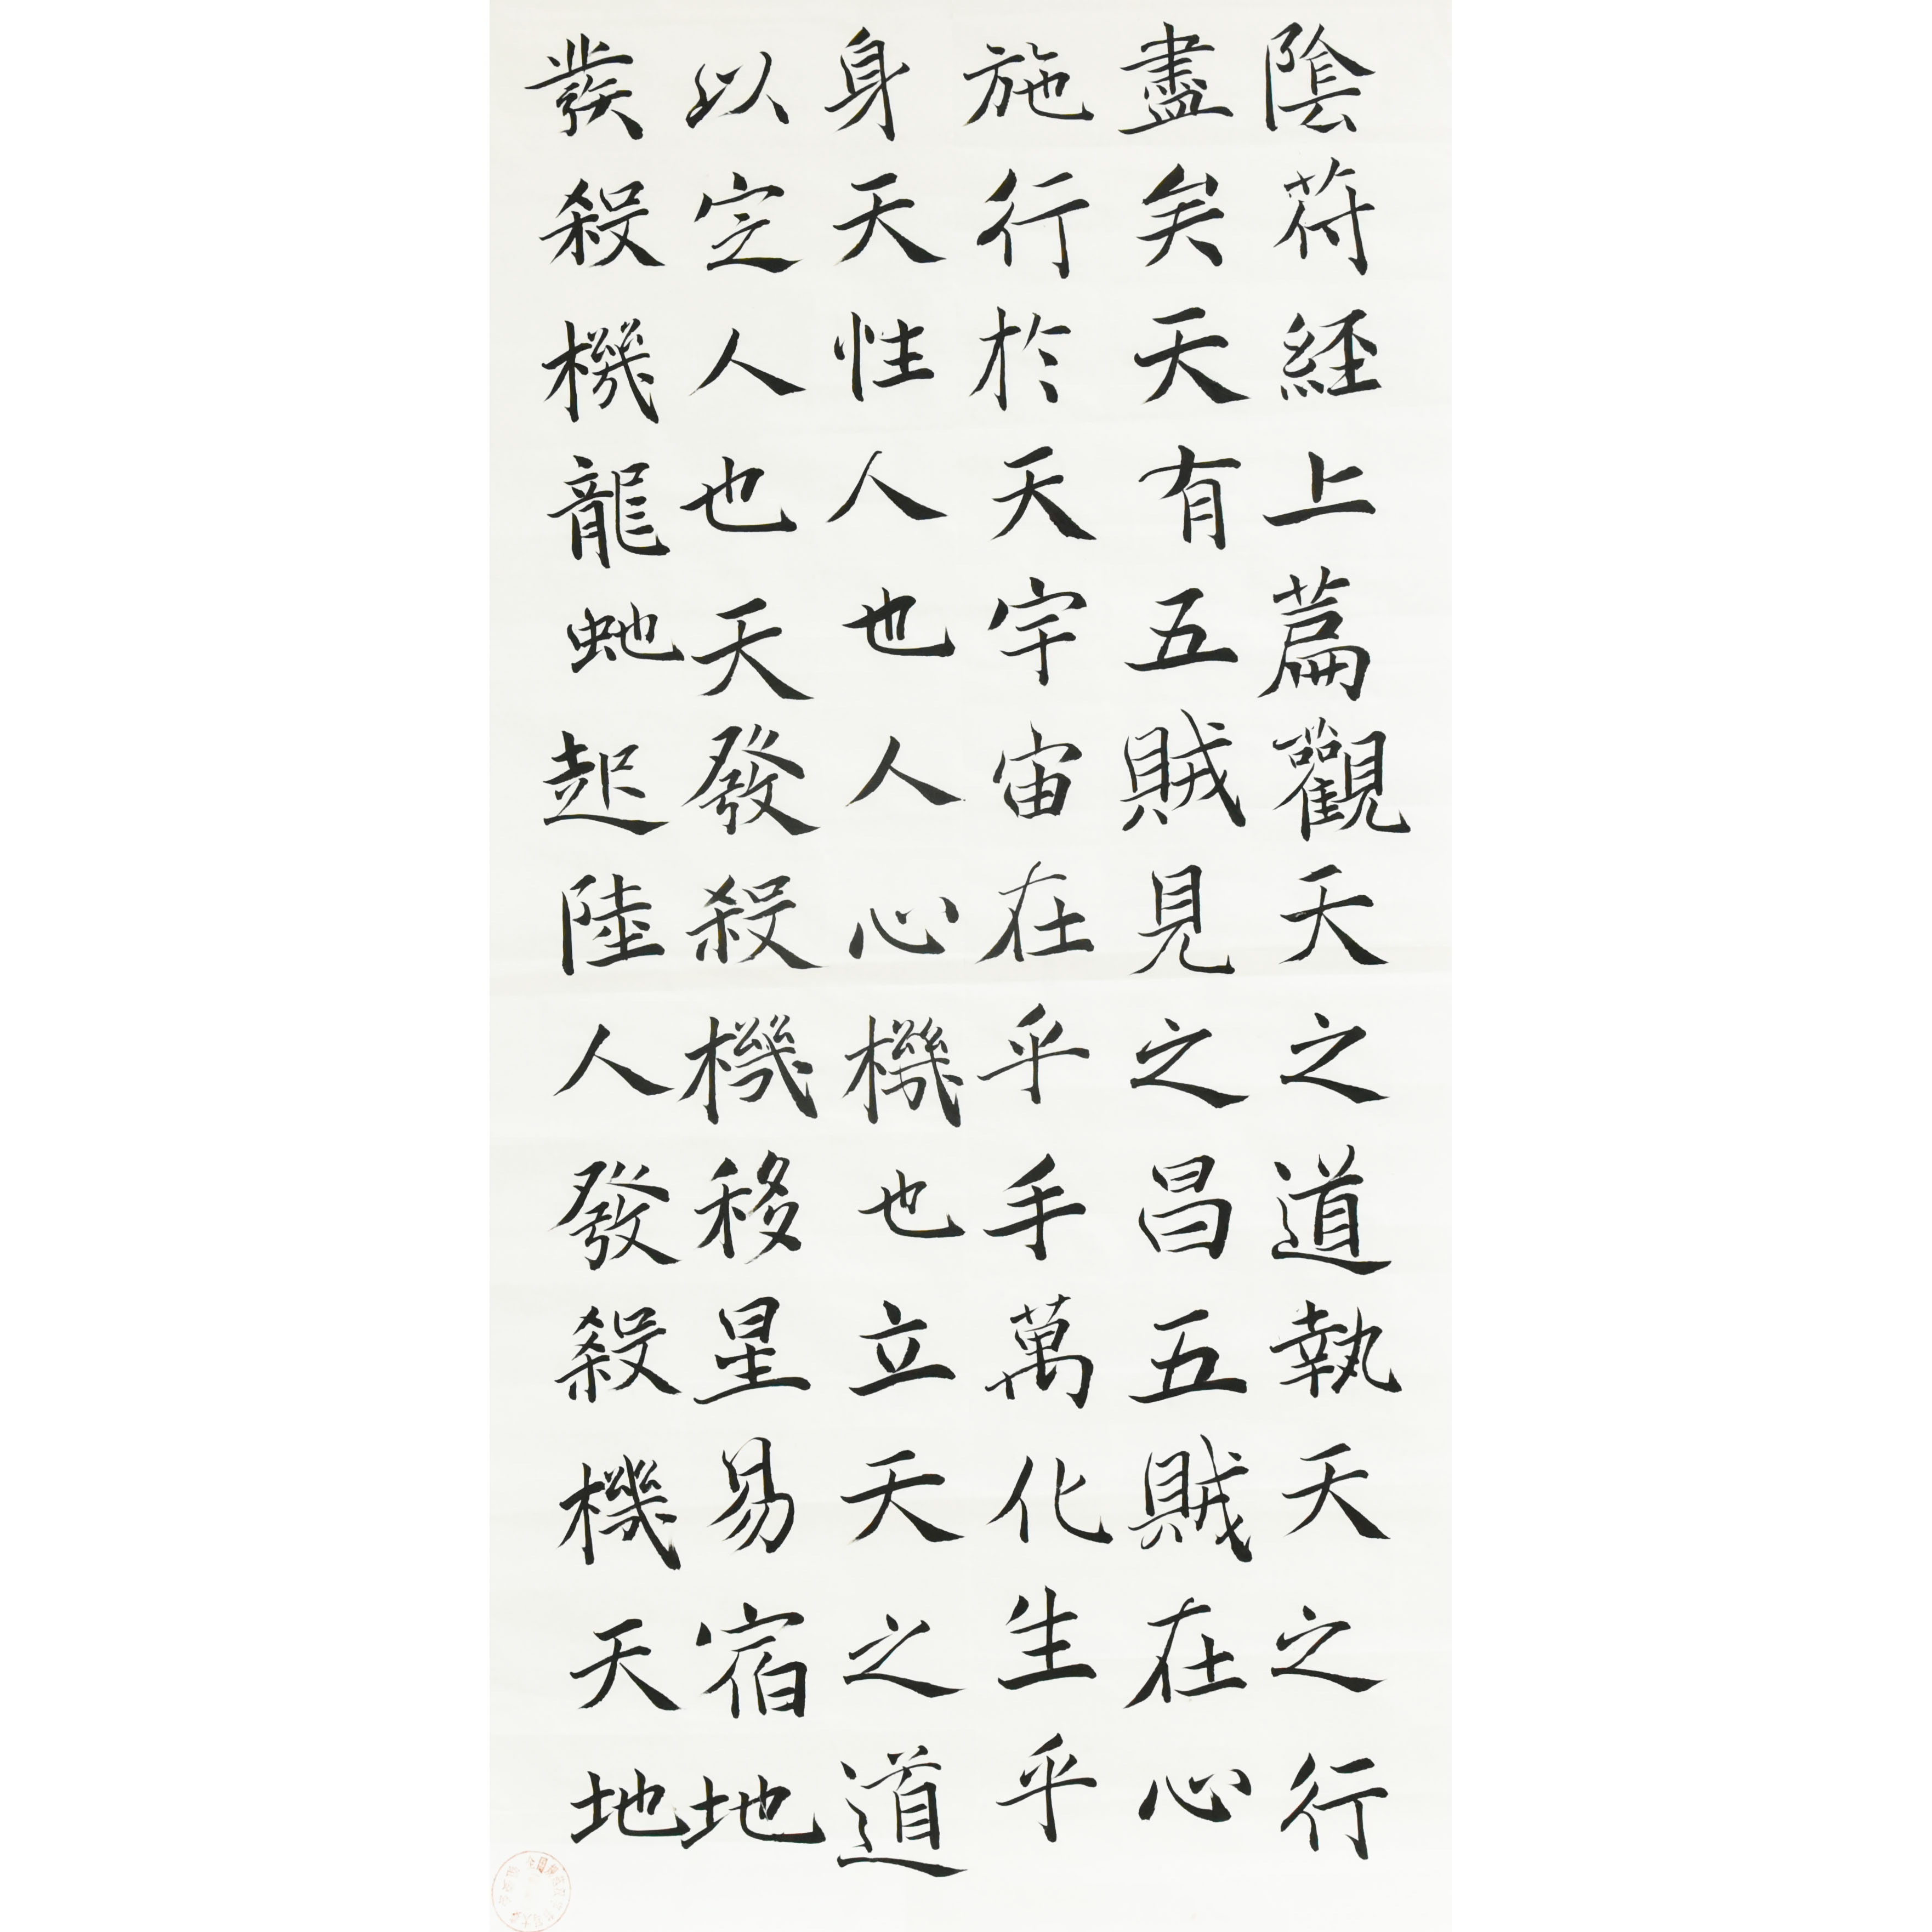 陰符經上篇觀天之道執天之行
盡矣天有五賊見之昌五賊在心
施行於天宇宙在乎手萬化生乎
身天性人也人心機也立天之道
以定人也天發殺機移星易宿地
發殺機龍虵起陸人發殺機天地